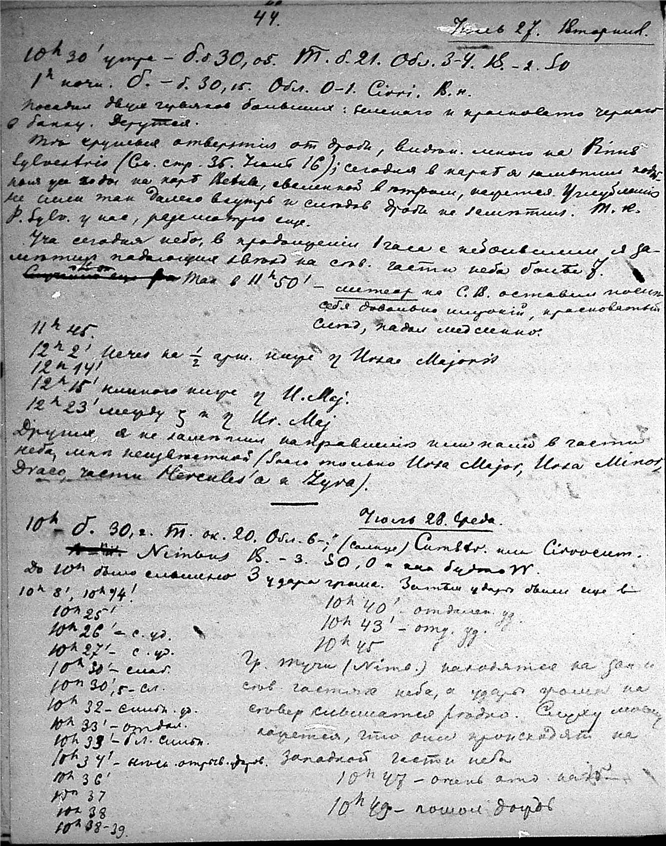 44.
Июль 27. Вторник.
10h 30' утра – б. 30, об. Т. б. 21. Обл. 3-4. В. – 2. SO
1h ночи. б. – б. 30,15. Обл. 0-1. Cirri. В. н.
Посадил двух больших: зеленого и красновато черного
в банку. Дерутся.
Что круглыя отверстия от дроби, видел много на Pinus
Sylvestris (См. стр. 35. Июль 16); сегодня я заметил
на коре Betula, сваленной кажется. Углубления
не шли так далеко внутрь и следов дроби не заметил. Т. к.
P. Sylv. у нас, разсмотрю еще.
сегодня небо, в продолжении 1 часа с небольшим я за-
метил падающих звезд на сев. части неба более 7.
Так в 11h 50' – метеор на С.В. оставил после
себя довольно широкий, красноватый
след, падал медленно.
11h 45.
12h 2' Исчез на ½ арш. ниже η Ursae Majoris
12h 14'
12h 15' немного ниже η U. Maj.
12h 23' между ζ и η Ur. Maj
Других я не заметил направления или пали в части
неба, мне неизвестной (было только Ursa Major, Ursa Minor,
Draco, части Hercules'а и Lyra).
Июль 28. Среда.
10h – б. 30,2. Т. ок. 20. Обл. 6-, (солнце) Cumstr. или Cirrocum.
Nimbus В. – 3. SO, O и как будто W.
До 10h было слышно 3 удара грома. Затем удары были еще в
10h 8', 10h 14'.
10h 25'
10h 26' – с. уд.
10h 27' – с. уд.
10h 30' – слаб.
10h 30',5 – сл.
10h 32 – сильн. уд.
10h 33' – отдал.
10h 33 – б. сильн.
10h 34' –
10h 36'
10h 37
10h 38
10h 38-39.
10h 40' – отдален. уд.
10h 43' – отд. уд.
10h 45
Гр. тучи (Nimb.) находятся на зап. и
сев. частях неба, а удары грома на
север слышатся редко. Слуху моему
кажется, что они происходят на
западной части неба
10h 47 – очень отд. на
10h 49 – пошол дождь